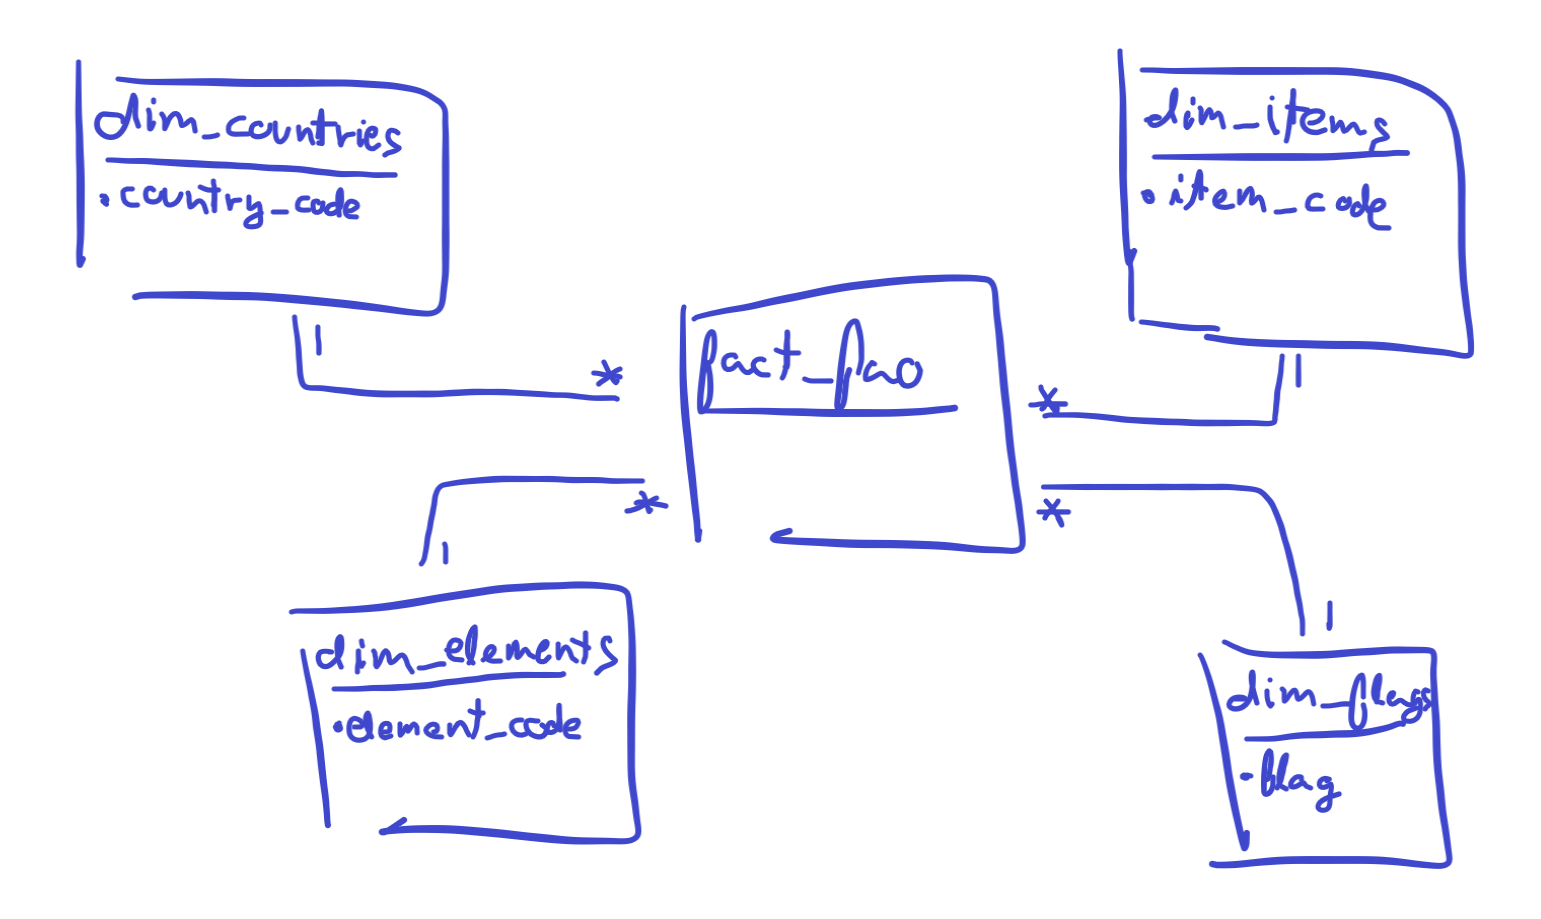 dim_countries
• country_code
1
*
dim_items
• item_code
1
*
fact_fao
*
1
dim_elements
• element_code
*
1
dim_flags
• flag